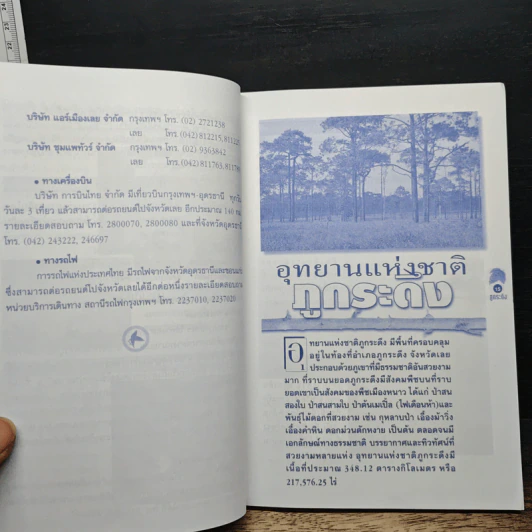 บริษัท แอร์เมืองเลย จำกัด กรุงเทพฯ โทร. (02) 2721238
เลย โทร. (042) 812215,
บริษัท ชุมแพทัวร์ จำกัด กรุงเทพฯ โทร. (02) 9363842
เลย โทร. (042) 811763,
• ทางเครื่องบิน
บริษัท การบินไทย จำกัด มีเที่ยวบินกรุงเทพฯ-อุดรธานี ทุกวัน
วันละ 3 เที่ยว แล้วสามารถต่อรถยนต์ไปจังหวัดเลย อีกประมาณ 140
รายละเอียดสอบถาม โทร. 2800070, 2800080 และที่จังหวัดอุดรธานี
โทร. (042) 243222, 246697
• ทางรถไฟ
การรถไฟแห่งประเทศไทย มีรถไฟจากจังหวัดอุดรธานีและขอนแก่น
ซึ่งสามารถต่อรถยนต์ไปจังหวัดเลยได้อีกต่อหนึ่งรายละเอียดสอบถาม
หน่วยบริการเดินทาง สถานีรถไฟกรุงเทพฯ โทร. 2237010, 2237020
อุทยานแห่งชาติ
ภูกระดึง
ภูกระดึง
อุทยานแห่งชาติภูกระดึง มีพื้นที่ครอบคลุม
อยู่ในท้องที่อำเภอภูกระดึง จังหวัดเลย
ประกอบด้วยภูเขาที่มีธรรมชาติอันสวยงาม
มาก ที่ราบบนยอดภูกระดึงมีสังคมพืชบนที่ราบ
ยอดเขาเป็นสังคมของพืชเมืองหนาว ได้แก่ ป่าสน
สองใบ ป่าสนสามใบ ป่าต้นเมเปิ้ล (ไฟเดือนห้า)และ
พันธุ์ไม้ดอกที่สวยงาม เช่น กุหลาบป่า เอื้องม้าวิ่ง
เอื้องคำหิน ดอกม่วนดักหงาย เป็นต้น ตลอดจนมี
เอกลักษณ์ทางธรรมชาติ บรรยากาศและทิวทัศน์ที่
สวยงามหลายแห่ง อุทยานแห่งชาติภูกระดึงมี
เนื้อที่ประมาณ 348.12 ตารางกิโลเมตร หรือ
217,576.25 ไร่